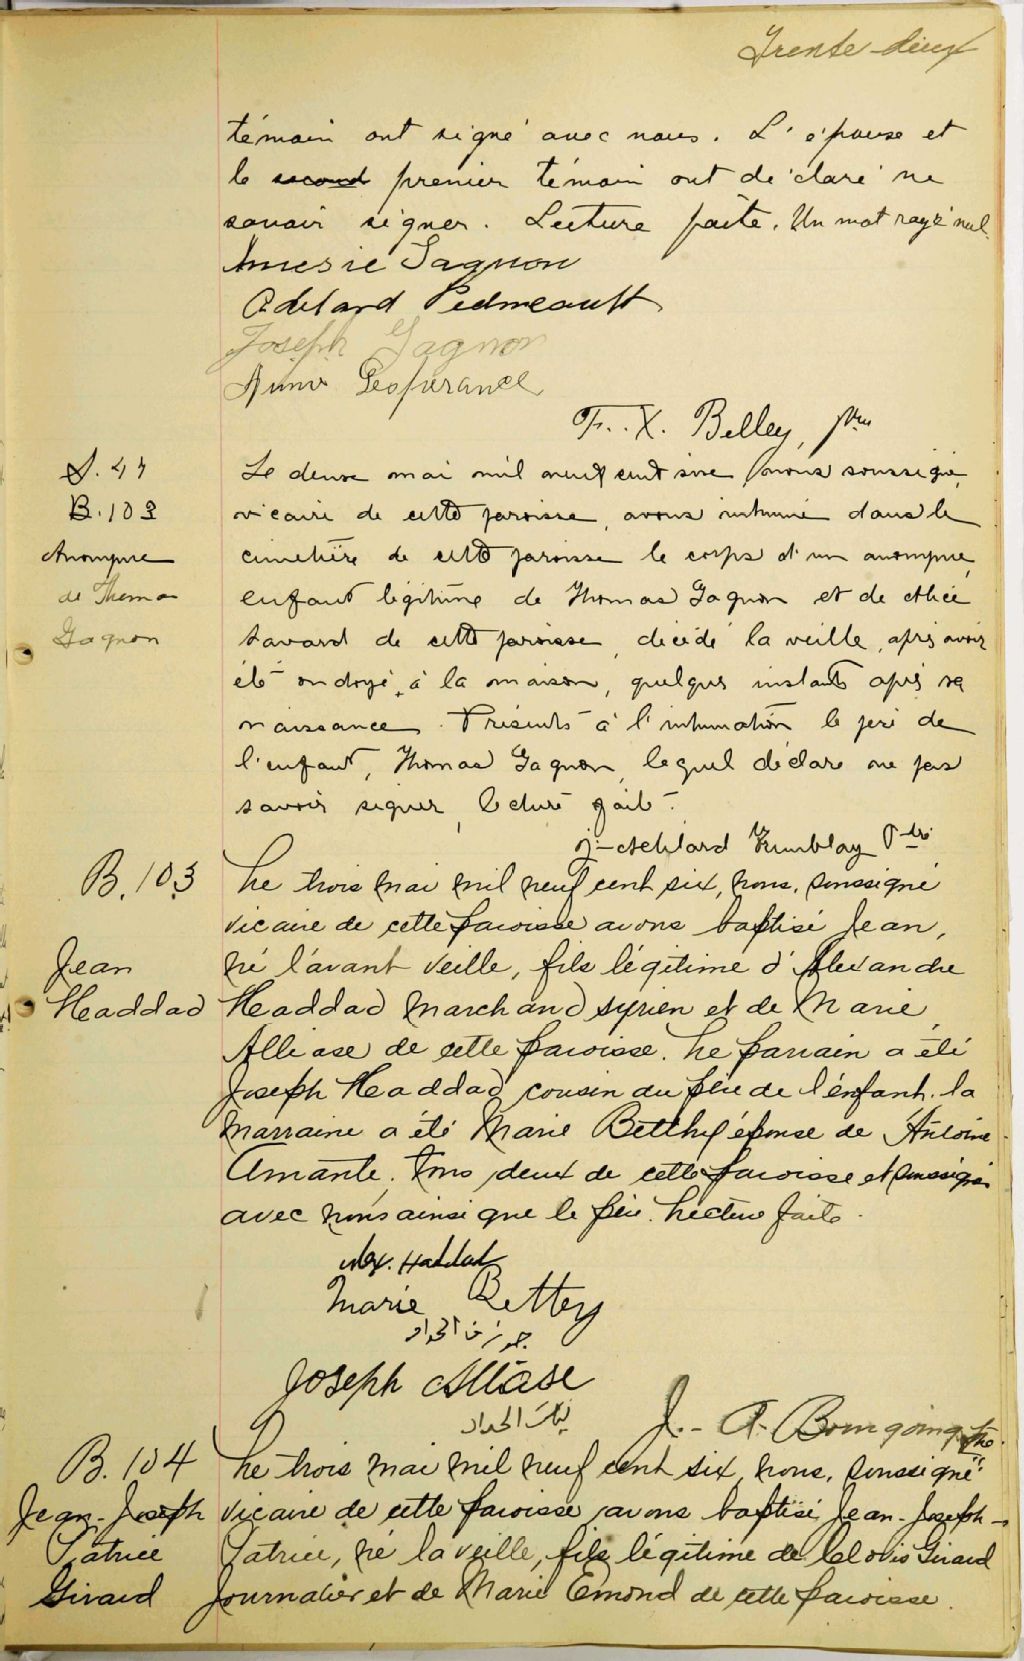 Trente-deux
témoin ont signé avec nous. L'épouse et
le second premier témoin ont déclaré ne
savoir signer. Lecture faite. Un mot rayé nul.
Gagnon
Adelard
Joseph Gagnon
F. X. Belley, ptre
S. 44
B. 103
Anonyme
de Thomas
Gagnon
Le deux mai mil neuf cent six, nous soussigné,
vicaire de cette paroisse, avons inhumé dans le
cimetière de cette paroisse le corps d'un anonyme,
enfant légitime de Thomas Gagnon et de Alice
Savard de cette paroisse, décédé la veille, après avoir
été ondoyé, à la maison, quelques instants après sa
naissance. Présents à l'inhumation le père de
l'enfant, Thomas Gagnon, lequel déclare ne pas
savoir signer, lecture faite.
J-Adélard Tremblay Ptre
B. 103
Jean
Haddad
Le trois mai mil neuf cent six, nous, soussigné
vicaire de cette paroisse avons baptisé Jean,
né l'avant veille, fils légitime d'Alexandre
Haddad marchand syrien et de Marie
Alliase de cette paroisse. Le parrain a été
Joseph Haddad cousin du père de l'enfant. la
marraine a été Marie Betthy épouse de Antoine
Amante. Tous deux de cette paroisse et soussignés
avec nous ainsi que le père. Lecture faite.
Alex. Haddad
Marie Bettey
جوزف الحداد
Joseph Alliase
الحداد
J.-A. Bourgoing, ptre
B. 104
Jean-Joseph
Patrice
Girard
Le trois mai mil neuf cent six, nous, soussigné
vicaire de cette paroisse avons baptisé Jean-Joseph-
Patrice, né la veille, fils légitime de Clovis Girard
Journalier et de Marie Emond de cette paroisse.